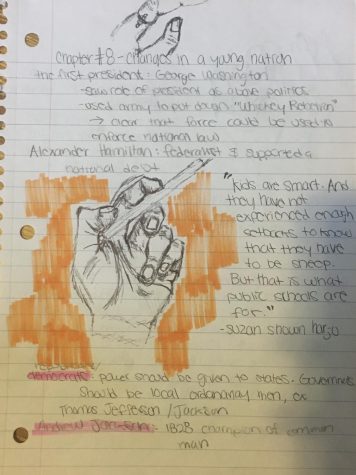 chapter #8 - changes in a young nation
the first president: George Washington
- saw role of president as above politics
- used army to put down "Whiskey Rebellion"
→ clear that force could be used to
enforce national law
Alexander Hamilton: federalist & supported a
national debt
"Kids are smart. And
they have not
experienced enough
setbacks to know
that they have
to be sheep.
But that is what
public schools are
for."
- suzan shown harjo
democrats: power should be given to states. Government
should be local ordananay men, ex
Thomas Jefferson / Jackson
Andrew Jackson: 1828 champion of common
man